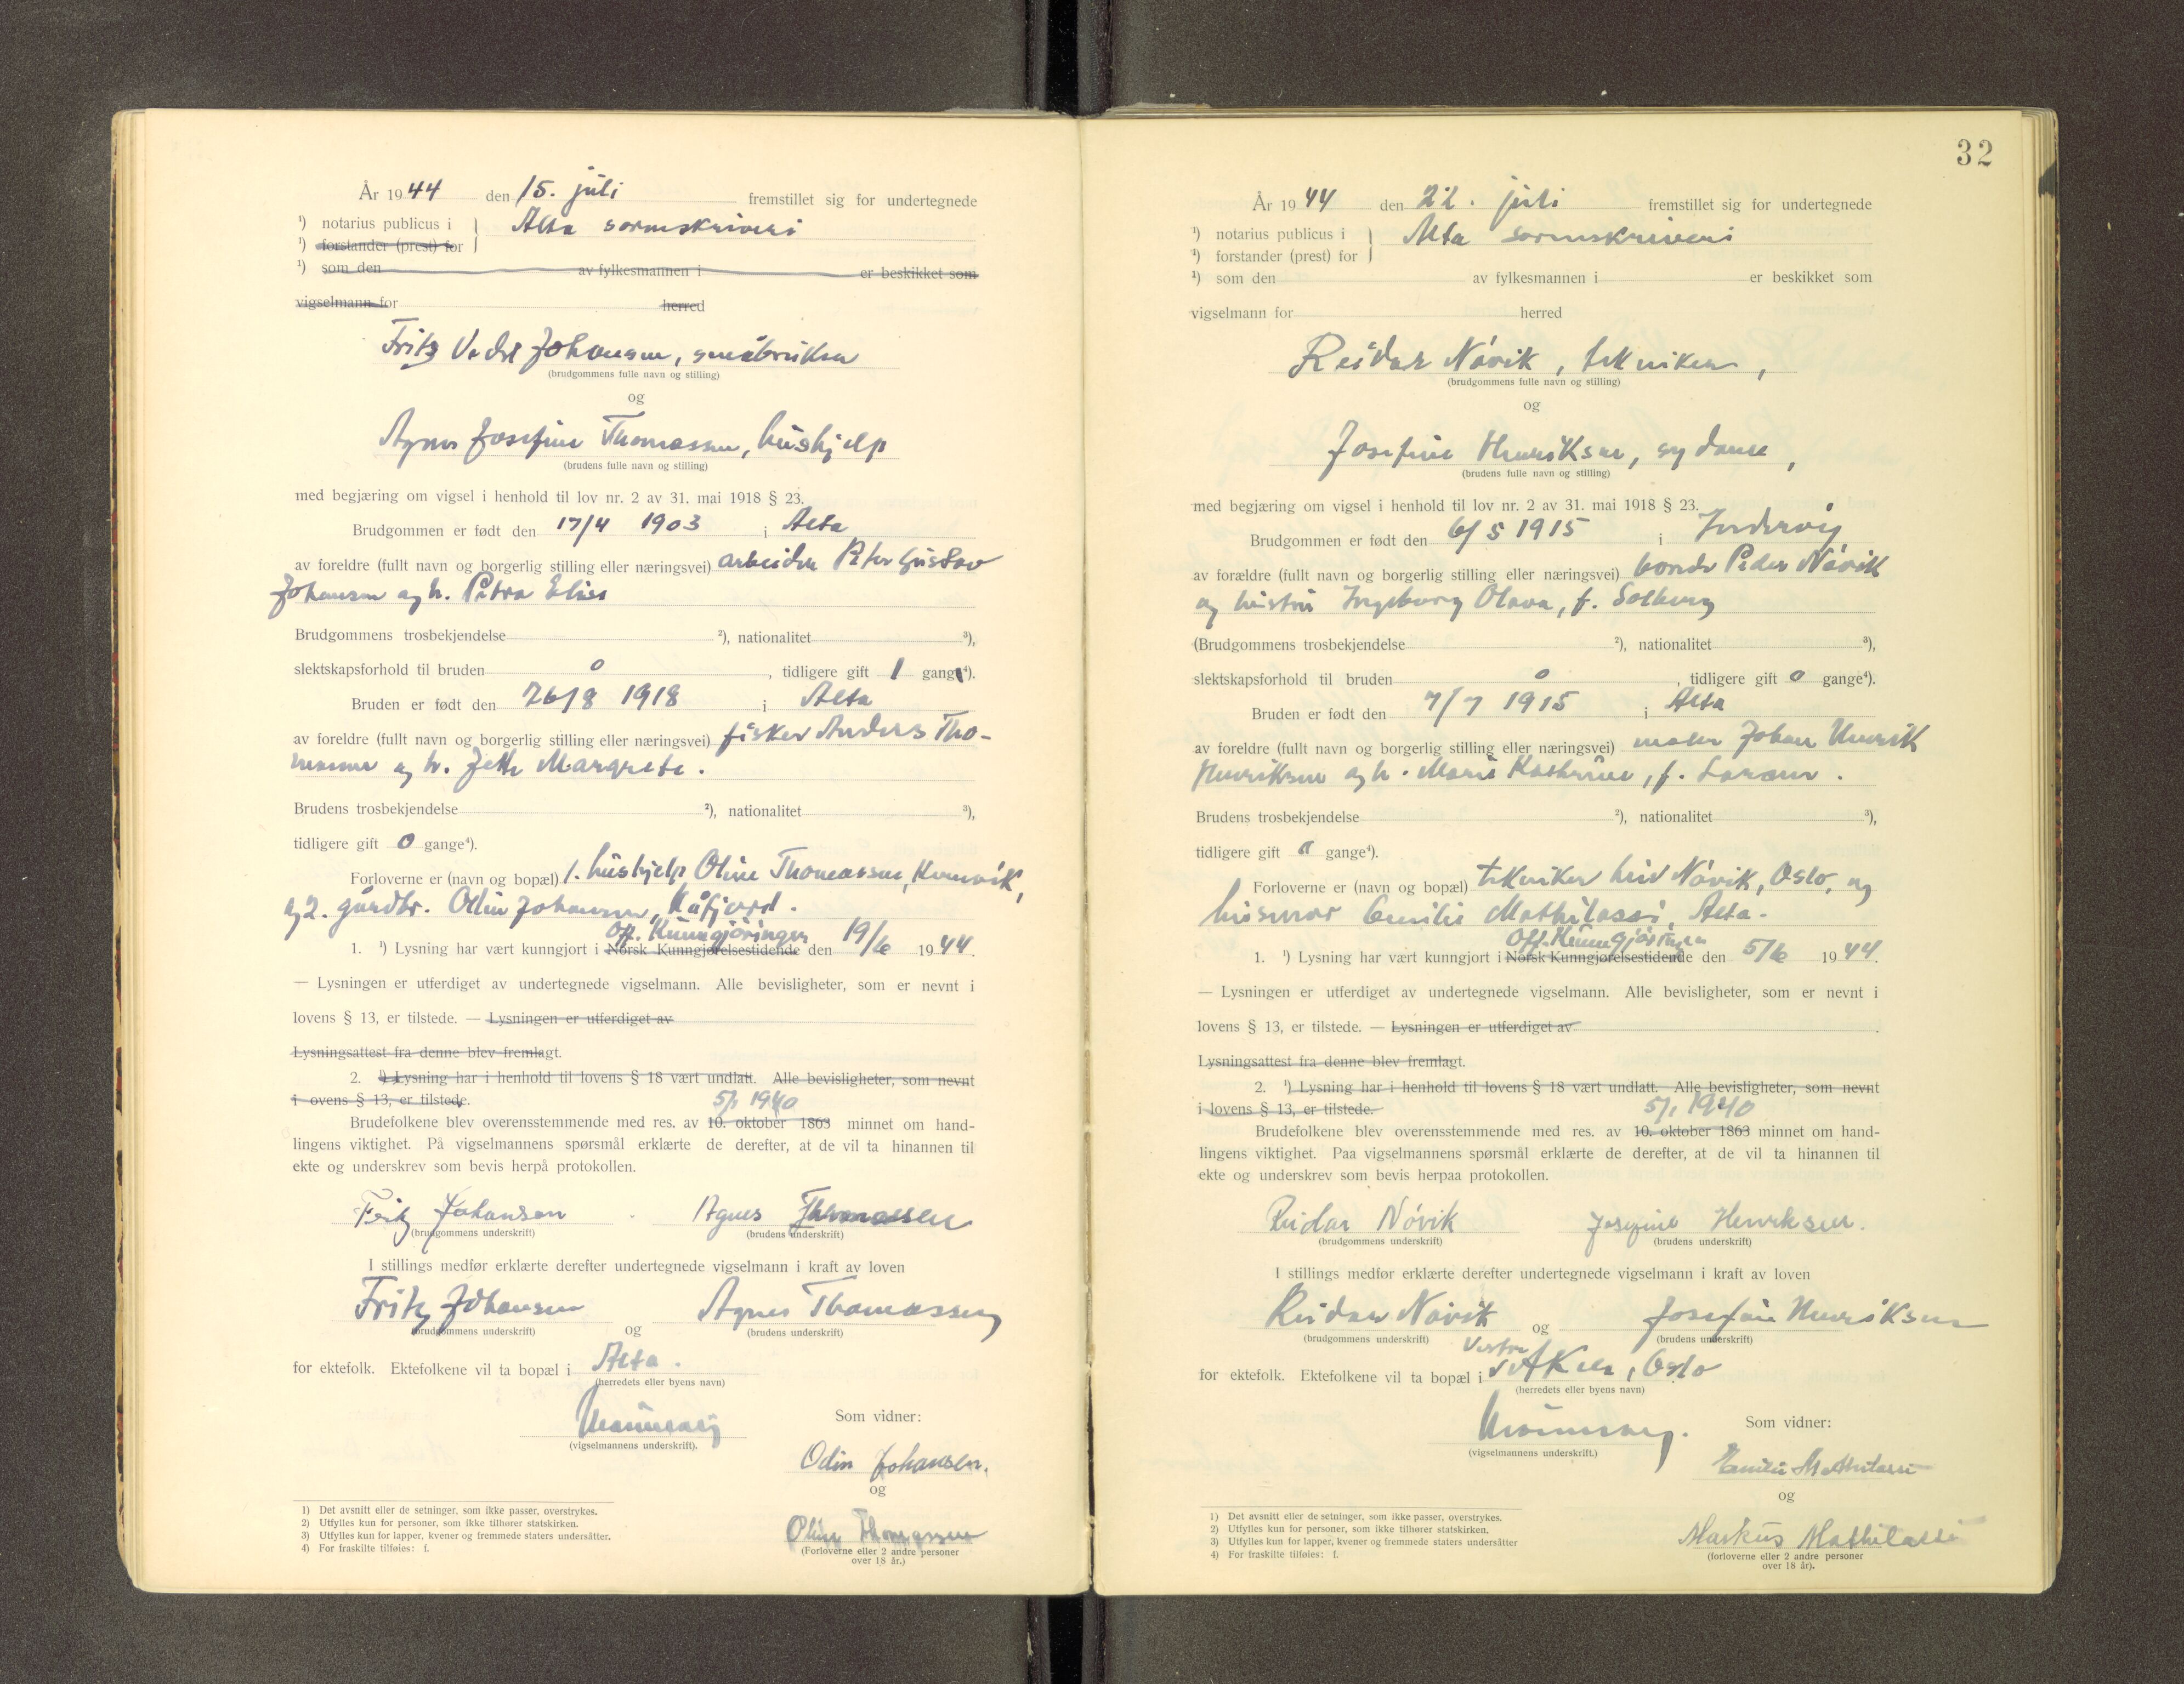 År 1944 den 15. juli fremstillet sig for undertegnede
¹) notarius publicus i } Alta sorenskriveri
¹) forstander (prest) for
¹) som den av fylkesmannen i er beskikket som
vigselmann for herred
Fritz Johansen, småbruker
(brudgommens fulle navn og stilling)
og
Agnes Josefine Thomassen, hushjelp
(brudens fulle navn og stilling)
med begjæring om vigsel i henhold til lov nr. 2 av 31. mai 1918 § 23.
Brudgommen er født den 17/4 1903 i Alta
av foreldre (fullt navn og borgerlig stilling eller næringsvei) arbeider Peter Gustav
Johansen og h. Petra Elise
Brudgommens trosbekjendelse ²), nationalitet ³),
slektskapsforhold til bruden 0, tidligere gift 1 gang⁴).
Bruden er født den 26/8 1918 i Alta
av foreldre (fullt navn og borgerlig stilling eller næringsvei) fisker Anders Tho-
massen og h. Margrete.
Brudens trosbekjendelse ²), nationalitet ³),
tidligere gift 0 gange⁴).
Forloverne er (navn og bopæl) 1. hushjelp Oline Thomassen, Kvenvik,
og 2. gårdbr. Odin Johansen, Kåfjord.
Off. Kunngjøringer
1. ¹) Lysning har vært kunngjort i Norsk Kunngjørelsestidende den 19/6 1944.
— Lysningen er utferdiget av undertegnede vigselmann. Alle bevisligheter, som er nevnt i
lovens § 13, er tilstede. — Lysningen er utferdiget av
Lysningsattest fra denne blev fremlagt.
2. ¹) Lysning har i henhold til lovens § 18 vært undlatt. Alle bevisligheter, som nevnt
i ovens § 13, er tilstede.
5/1 1940
Brudefolkene blev overensstemmende med res. av 10. oktober 1863 minnet om hand-
lingens viktighet. På vigselmannens spørsmål erklærte de derefter, at de vil ta hinannen til
ekte og underskrev som bevis herpå protokollen.
Fritz Johansen Agnes Thomassen
(brudgommens underskrift) (brudens underskrift)
I stillings medfør erklærte derefter undertegnede vigselmann i kraft av loven
Fritz Johansen og Agnes Thomassen
(brudgommens underskrift) (brudens underskrift)
for ektefolk. Ektefolkene vil ta bopæl i Alta.
(herredets eller byens navn)
(vigselmannens underskrift).
Som vidner:
Odin Johansen.
og
Oline Thomassen
(Forloverne eller 2 andre personer
over 18 år.)
1) Det avsnitt eller de setninger, som ikke passer, overstrykes.
2) Utfylles kun for personer, som ikke tilhører statskirken.
3) Utfylles kun for lapper, kvener og fremmede staters undersåtter.
4) For fraskilte tilføies: f.
32
År 1944 den 22. juli fremstillet sig for undertegnede
¹) notarius publicus i } Alta sorenskriveri
¹) forstander (prest) for
¹) som den av fylkesmannen i er beskikket som
vigselmann for herred
Reidar Nåvik, tekniker,
(brudgommens fulle navn og stilling)
og
Josefine Henriksen, sydame,
(brudens fulle navn og stilling)
med begjæring om vigsel i henhold til lov nr. 2 av 31. mai 1918 § 23.
Brudgommen er født den 6/5 1915 i
av forældre (fullt navn og borgerlig stilling eller næringsvei) bonde Peder Nåvik
og hustru Ingeborg Olava, f. Solberg
(Brudgommens trosbekjendelse ²), nationalitet ³),
slektskapsforhold til bruden 0, tidligere gift 0 gange⁴).
Bruden er født den 7/7 1915 i Alta
av foreldre (fullt navn og borgerlig stilling eller næringsvei) maler Johan Henrik
Henriksen og h. Marie Kathrine, f. Larsen.
Brudens trosbekjendelse ²), nationalitet ³),
tidligere gift 0 gange⁴).
Forloverne er (navn og bopæl) tekniker Nåvik, Oslo, og
husmor Emilie Mathilassi, Alta.
Off. Kunngjøringer
1. ¹) Lysning har vært kunngjort i Norsk Kunngjørelsestidende den 5/6 1944.
— Lysningen er utferdiget av undertegnede vigselmann. Alle bevisligheter, som er nevnt i
lovens § 13, er tilstede. — Lysningen er utferdiget av
Lysningsattest fra denne blev fremlagt.
2. ¹) Lysning har i henhold til lovens § 18 vært undlatt. Alle bevisligheter, som nevnt
i lovens § 13, er tilstede.
5/1 1940
Brudefolkene blev overensstemmende med res. av 10. oktober 1863 minnet om hand-
lingens viktighet. Paa vigselmannens spørsmål erklærte de derefter, at de vil ta hinannen til
ekte og underskrev som bevis herpaa protokollen.
Reidar Nåvik Josefine Henriksen.
(brudgommens underskrift) (brudens underskrift)
I stillings medfør erklærte derefter undertegnede vigselmann i kraft av loven
Reidar Nåvik og Josefine Henriksen
(brudgommens underskrift) (brudens underskrift)
Vestre
for ektefolk. Ektefolkene vil ta bopæl i Aker, Oslo
(herredets eller byens navn)
(vigselmannens underskrift.)
Som vidner:
Emilie Mathilassi
og
Markus Mathilassi
(forloverne eller 2 andre personer
over 18 år).
1) Det avsnitt eller de setninger, som ikke passer, overstrykes.
2) Utfylles kun for personer, som ikke tilhører statskirken.
3) Utfylles kun for lapper, kvener og fremmede staters undersåtter
4) For fraskilte tilføies: f.